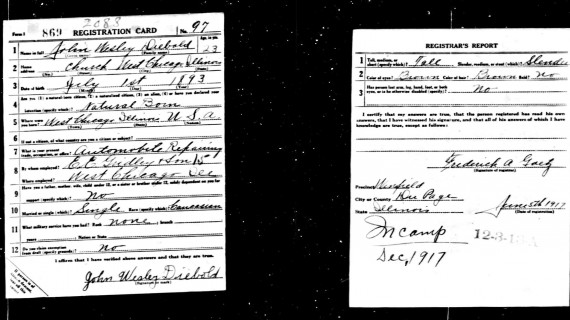 2088
Form 1 869 REGISTRATION CARD No. 97
1 Name in full John Wesley Diebold Age, in yrs. 23
2 Home address Church West Chicago Illinois
3 Date of birth July 1st 1893
4 Are you (1) a natural-born citizen, (2) a naturalized citizen, (3) an alien, (4) or have you declared your
intention (specify which)? Natural Born
5 Where were you born? West Chicago Illinois U.S.A.
6 If not a citizen, of what country are you a citizen or subject?
7 What is your present trade, occupation, or office? Automobile Repairing
8 By whom employed? E.E. Gridley & Sons
Where employed? West Chicago Ill
9 Have you a father, mother, wife, child under 12, or a sister or brother under 12, solely dependent on you for
support (specify which)? No
10 Married or single (which)? Single Race (specify which)? Caucasian
11 What military service have you had? Rank none branch
years Nation or State
12 Do you claim exemption from draft (specify grounds)? No
I affirm that I have verified above answers and that they are true.
John Wesley Diebold
(Signature or mark)
REGISTRAR'S REPORT
1 Tall, medium, or short (specify which)? Tall Slender, medium, or stout (which)? Slender
2 Color of eyes? Brown Color of hair? Brown Bald? No
3 Has person lost arm, leg, hand, foot, or both eyes, or is he otherwise disabled (specify)? No
I certify that my answers are true, that the person registered has read his own
answers, that I have witnessed his signature, and that all of his answers of which I have
knowledge are true, except as follows:
Frederick A Goetz
(Signature of registrar)
Precinct Winfield
City or County Du Page
State Illinois
June 5th 1917
(Date of registration)
In camp
Dec, 1917